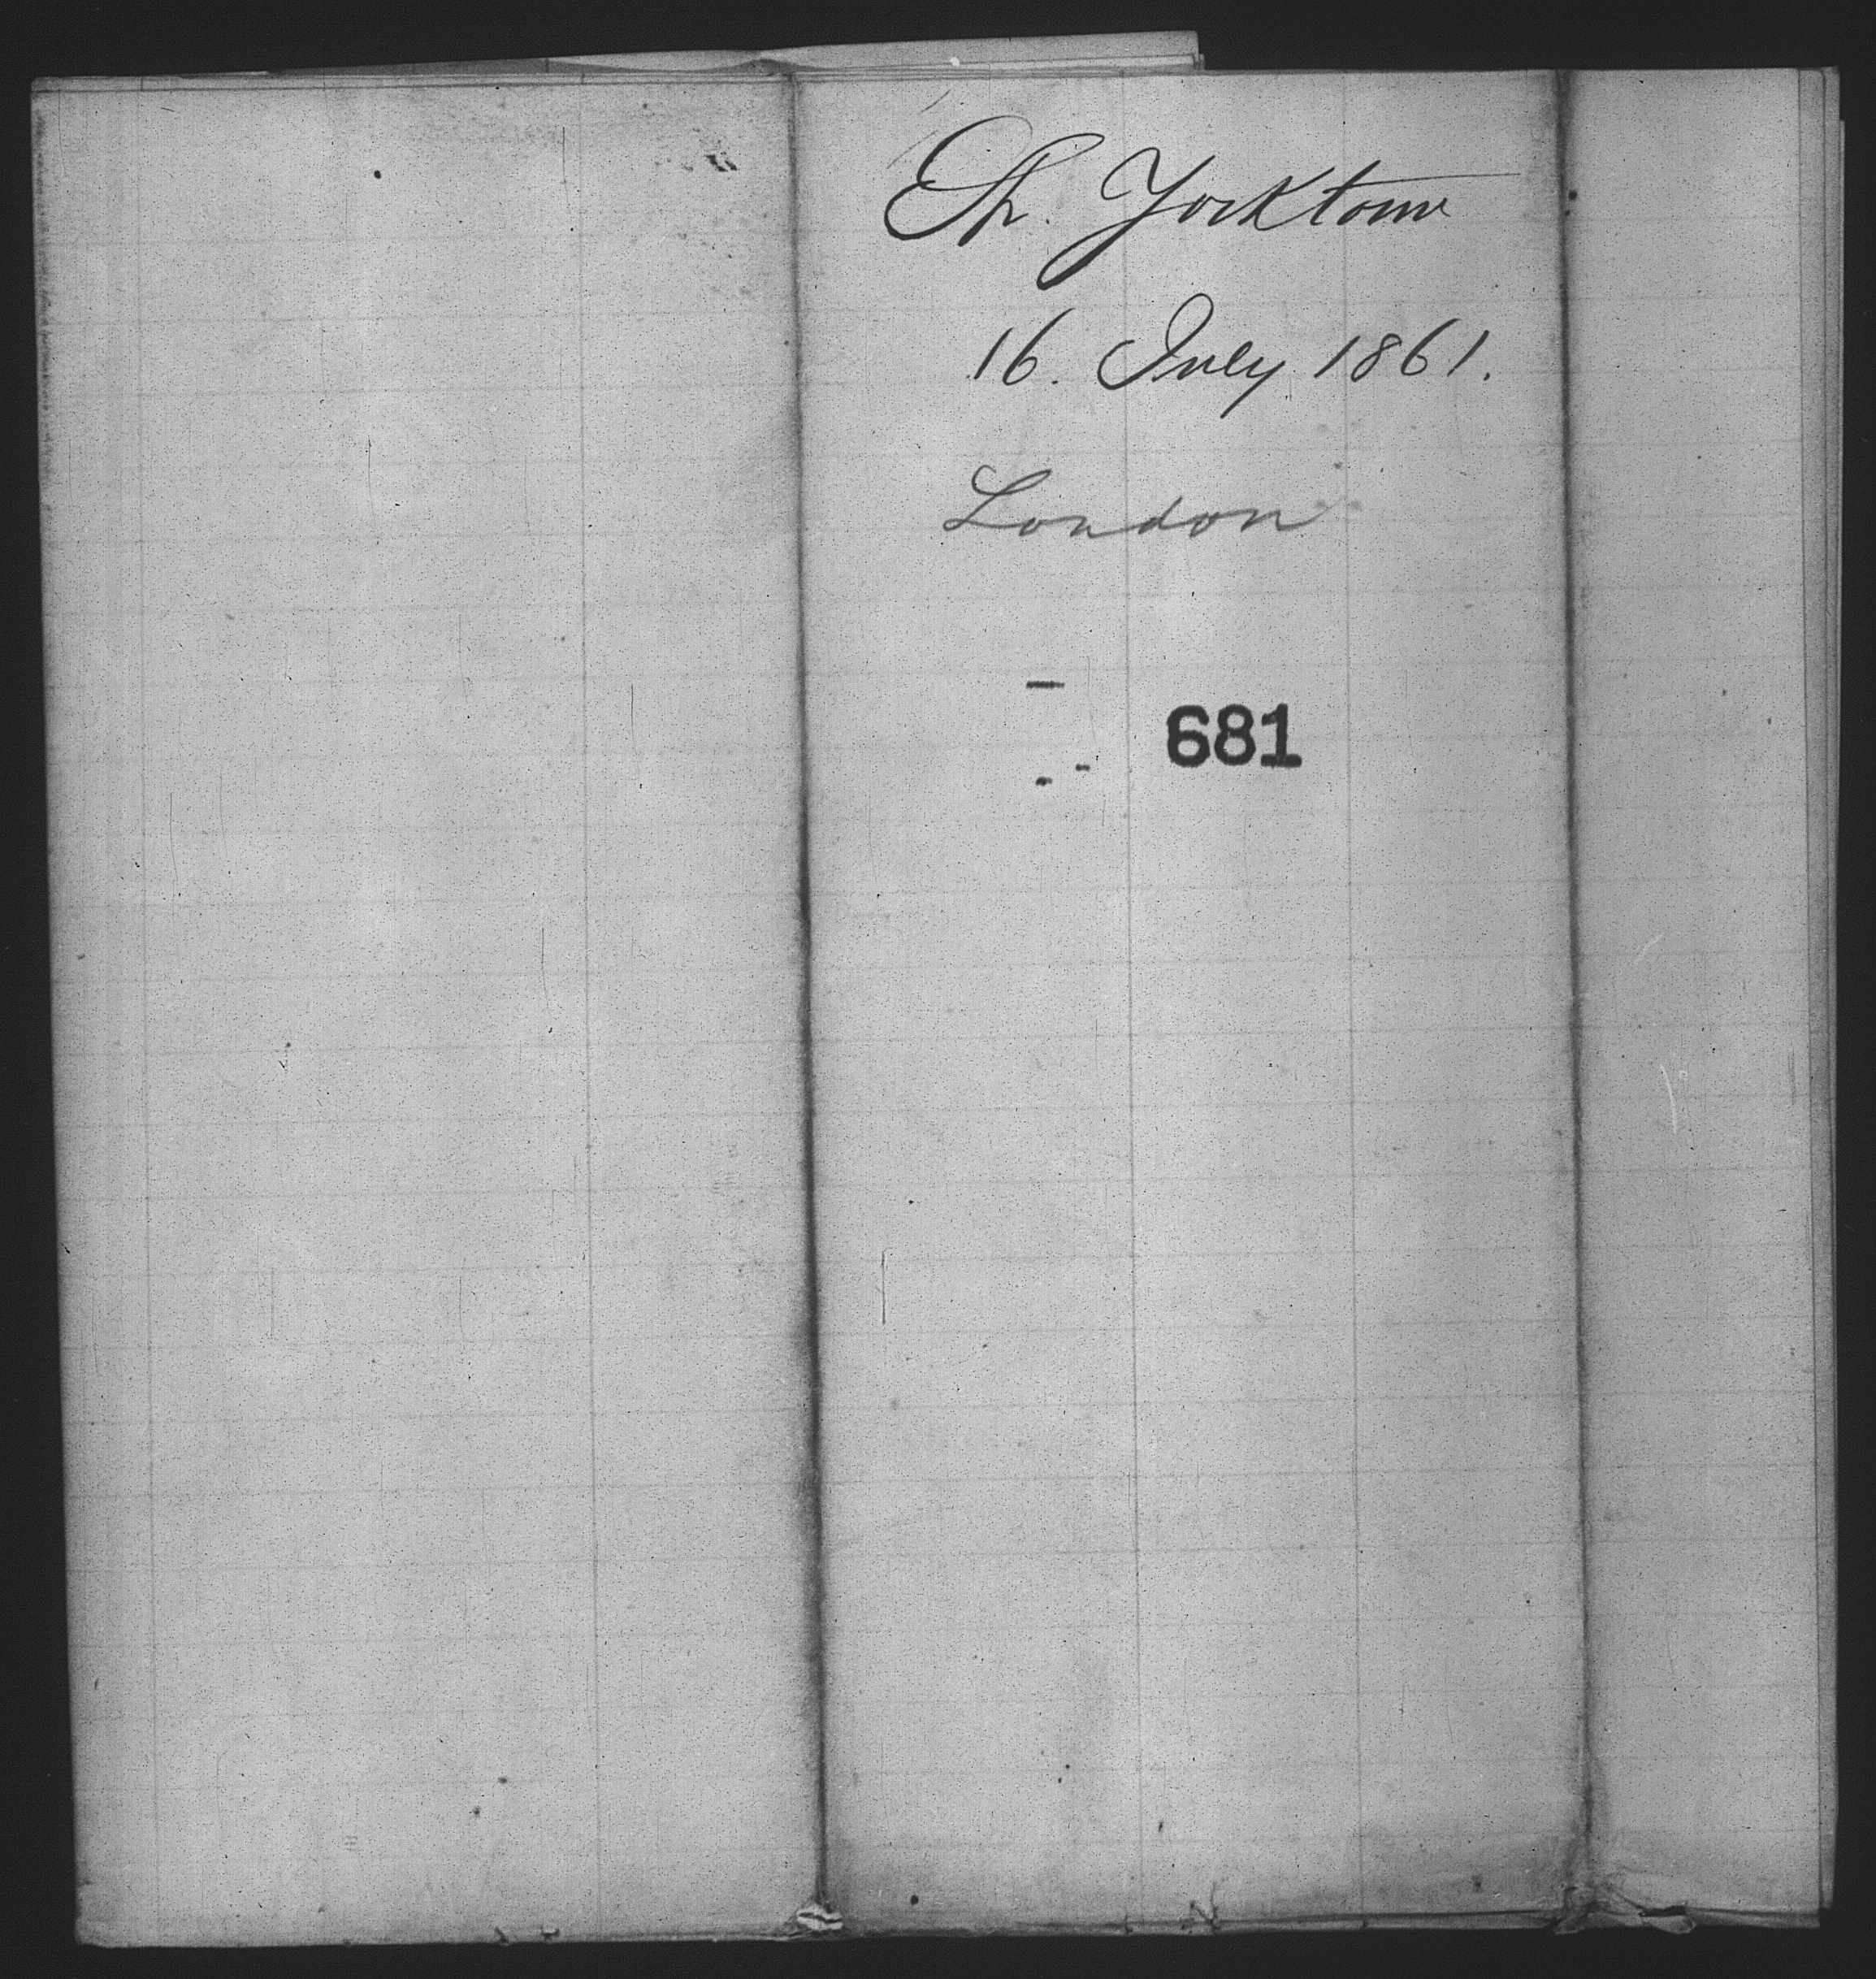 Sh. Yorktown
16. July 1861.
London
681